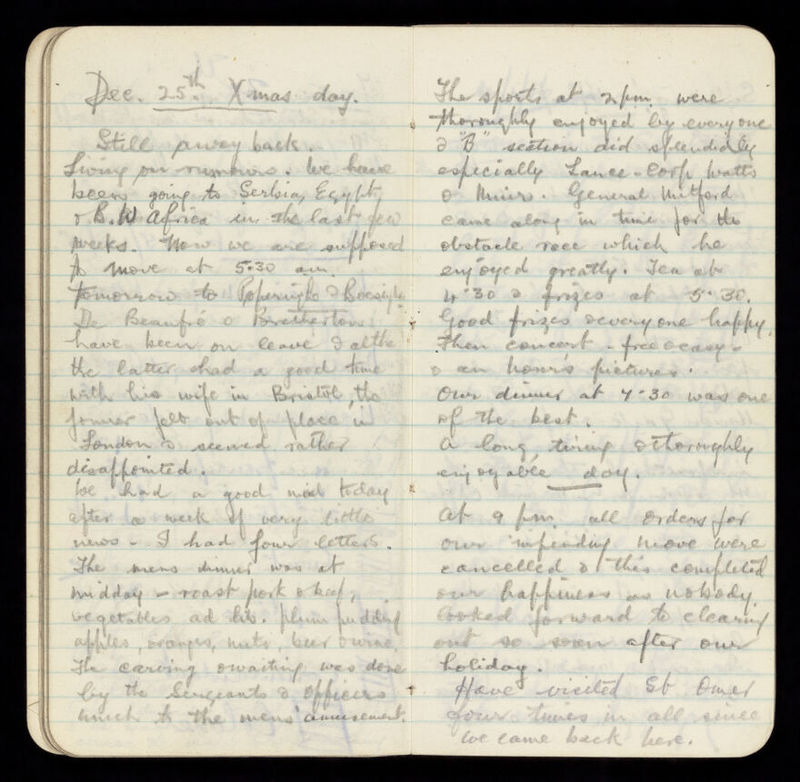 Dec. 25th Xmas day.
Still away back.
Living on rumours. We have
been going to Serbia, Egypt,
& B.W Africa in the last few
weeks. Now we are supposed
to move at 5.30 am.
tomorrow to &
De Beaufré & Bretherton
have been on leave & altho
the latter had a good time
with his wife in Bristol, the
former felt out of place in
London & seemed rather
disappointed.
We had a good mail today
after a week of very little
news - I had four letters.
The mens dinner was at
midday - roast pork & beef,
vegetables ad lib. plum pudding
apples, oranges, nuts, beer & wine.
The carving & waiting was done
by the Sergeants & Officers
much to the mens' amusement.
The sports at 2 pm. were
thoroughly enjoyed by everyone
& "B" section did splendidly
especially Lance-Corp Watts
& . General Mitford
came along in time for the
obstacle race which he
enjoyed greatly. Tea at
4.30 & prizes at 5.30.
Good prizes & everyone happy.
Then concert - free & easy -
& an hour's pictures.
Our dinner at 7.30 was one
of the best.
A long, tiring & thoroughly
enjoyable day.
At 9 pm. all orders for
our impending move were
cancelled & this completed
our happiness as nobody
looked forward to clearing
out so soon after our
holiday.
Have visited St Omer
four times in all since
we came back here.